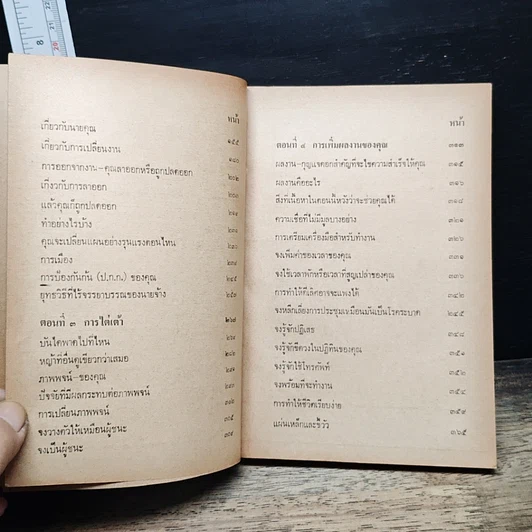 8
หน้า
เกี่ยวกับนายคุณ ๑๕๕
เกี่ยวกับการเปลี่ยนงาน ๑๘๐
การออกจากงาน-คุณลาออกหรือถูกปลดออก ๒๐๒
เกี่ยวกับการลาออก
แล้วคุณก็ถูกปลดออก
ทำอย่างไรบ้าง
คุณจะเปลี่ยนแผนอย่างรุนแรงตอนไหน
การเมือง
การป้องกันก้น (ป.ก.ก.) ของคุณ ๒๔๕
ยุทธวิธีที่ไร้จรรยาบรรณของนายจ้าง
ตอนที่ ๓ การไต่เต้า ๒๖๙
บันไดพาดไปที่ไหน
หญ้าที่อื่นดูเขียวกว่าเสมอ
ภาพพจน์-ของคุณ
ปัจจัยที่มีผลกระทบต่อภาพพจน์
การเปลี่ยนภาพพจน์
จงวางตัวให้เหมือนผู้ชนะ
จงเป็นผู้ชนะ
หน้า
ตอนที่ ๔ การเพิ่มผลงานของคุณ ๓๑๓
ผลงาน-กุญแจดอกสำคัญที่จะไขความสำเร็จให้คุณ ๓๑๕
ผลงานคืออะไร ๓๑๖
สิ่งที่เนื้อหาในตอนนี้หวังว่าจะช่วยคุณได้ ๓๑๘
ความเชื่อที่ไม่มีมูลบางอย่าง ๓๒๑
การเตรียมเครื่องมือสำหรับทำงาน ๓๒๖
จงเพิ่มค่าของเวลาของคุณ ๓๓๑
จงใช้เวลาพักหรือเวลาที่สูญเปล่าของคุณ ๓๓๖
การทำให้ดีเลิศอาจจะแพงได้ ๓๔๒
จงหลีกเลี่ยงการประชุมเหมือนมันเป็นโรคระบาด ๓๔๕
จงรู้จักปฏิเสธ ๓๔๘
จงรู้จักขีดวงในปฏิทินของคุณ ๓๕๑
จงรู้จักใช้โทรศัพท์ ๓๕๒
จงพร้อมที่จะทำงาน ๓๕๔
การทำให้ชีวิตเรียบง่าย ๓๕๙
แผ่นเหล็กและขี้วัว ๓๖๕